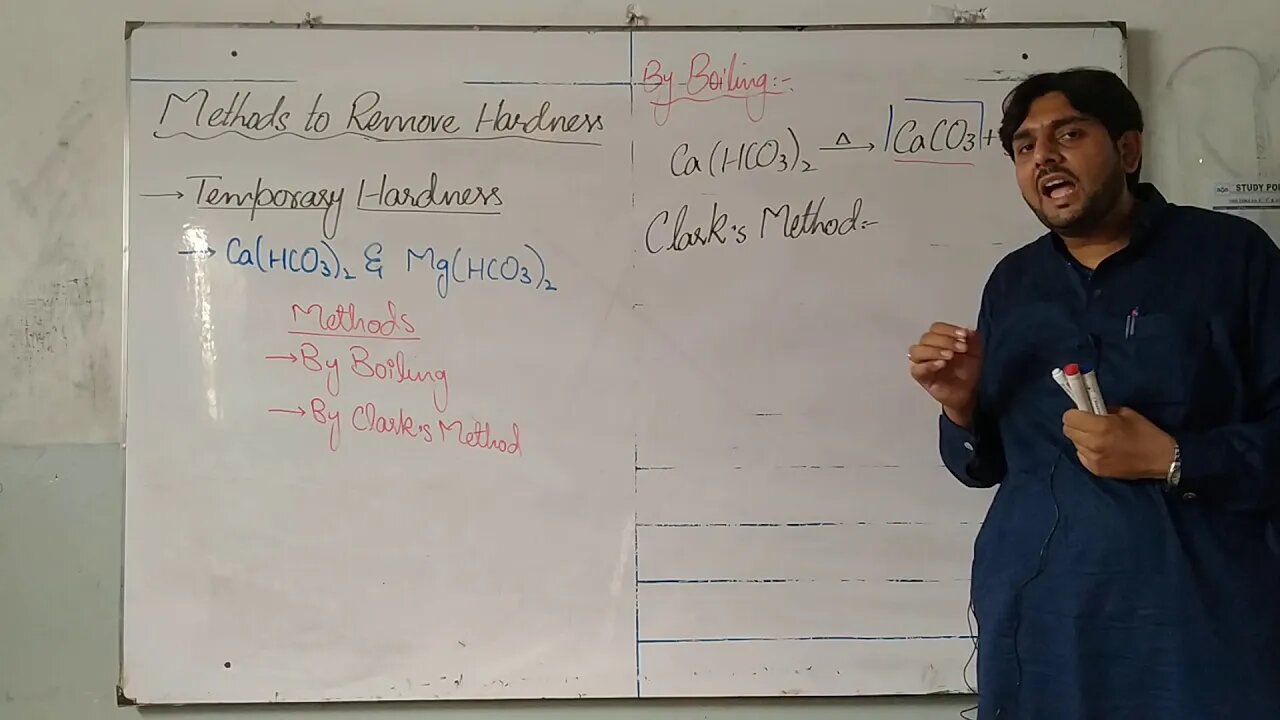 Methods to Remove Hardness
→ Temporary Hardness
→ Ca(HCO3)2 & Mg(HCO3)2
Methods
→ By Boiling
→ By Clark's Method
By Boiling:-
Ca(HCO3)2 Δ→ CaCO3 +
Clark's Method:-
STUDY